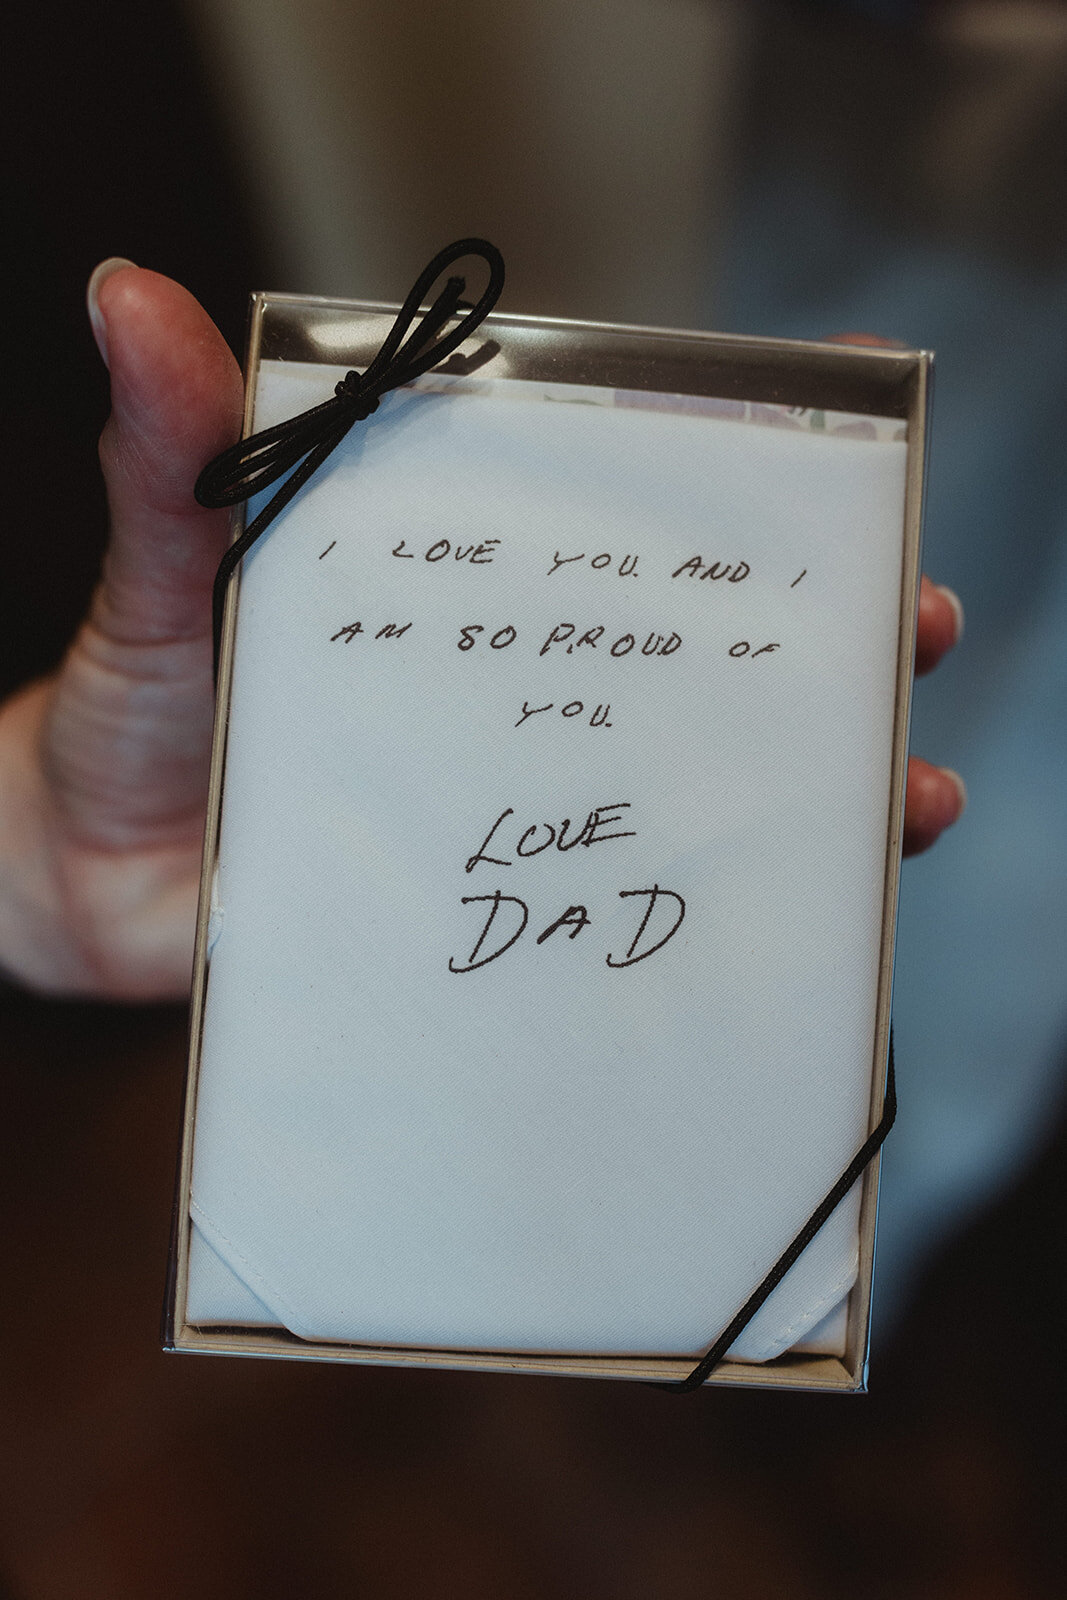 I LOVE YOU. AND I
AM SO PROUD OF
YOU.
LOVE
DAD